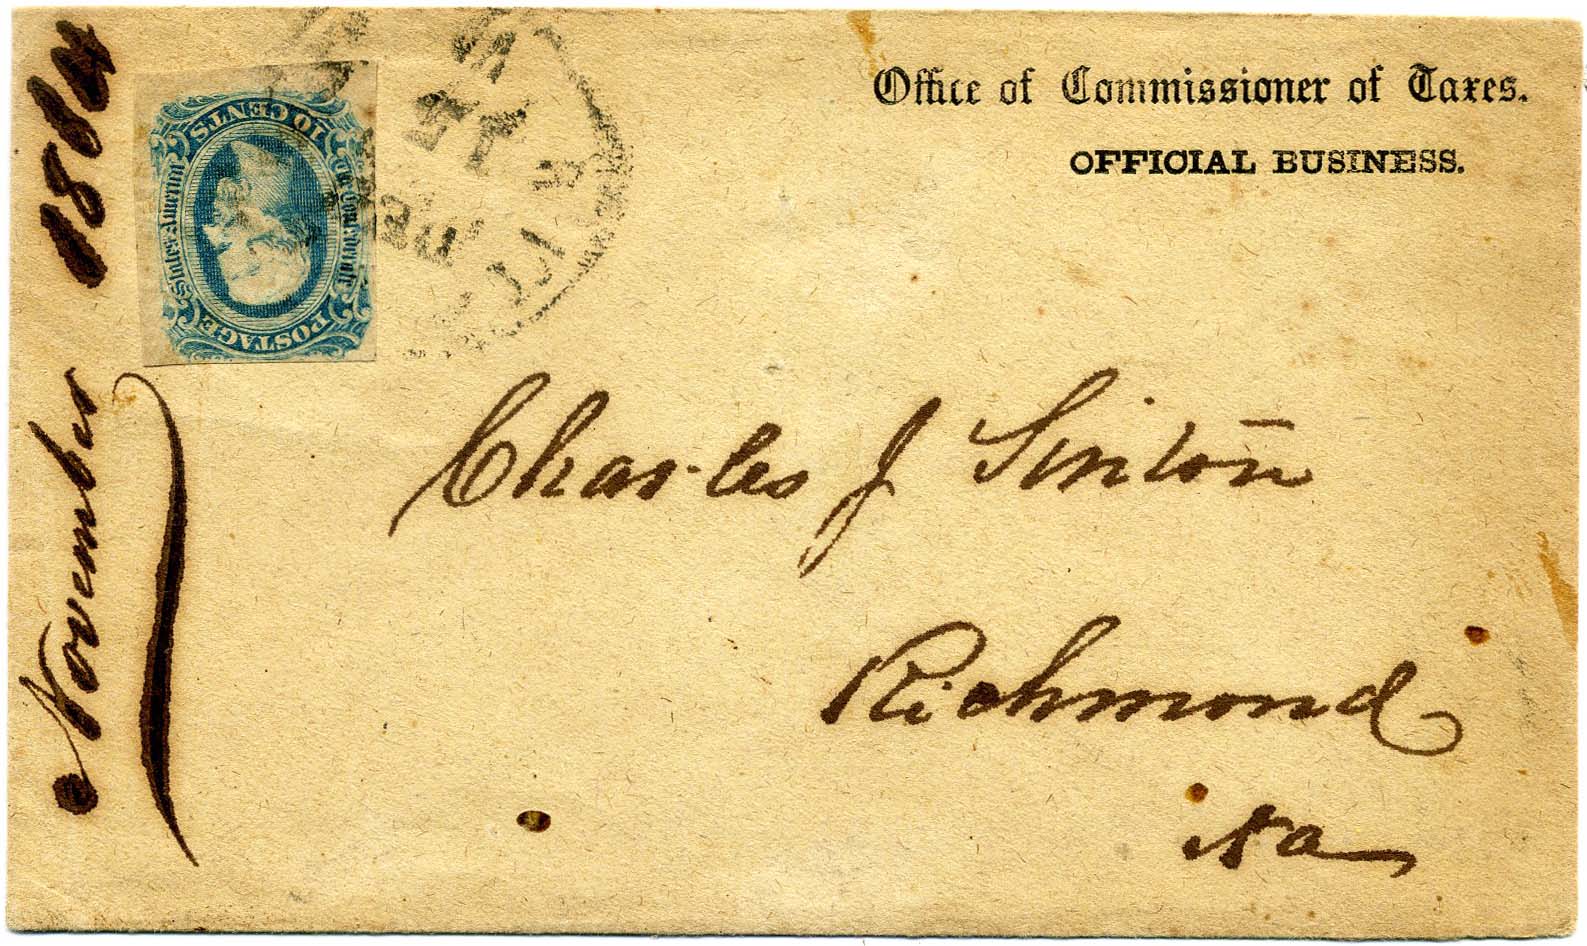 Office of Commissioner of Taxes.
OFFICIAL BUSINESS.
10 CENTS
The Confederate
States America
POSTAGE
November 1864
Charles J Sinton
Richmond
Va